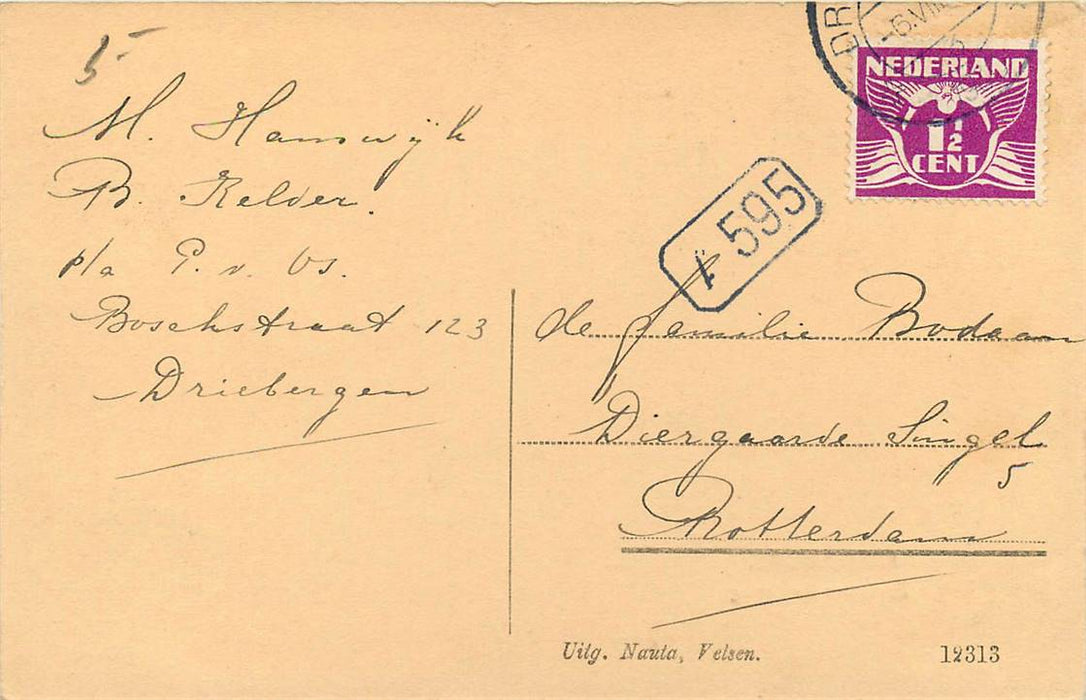 5-
M. Hanswijk
B. Kelder.
p/a P. v. Os.
Boschstraat 123
Driebergen
DR
-6.VIII
NEDERLAND
1½
CENT
595
de familie Bodaan
Diergaarde Singel
5
Rotterdam
Uitg. Nauta, Velsen.
12313